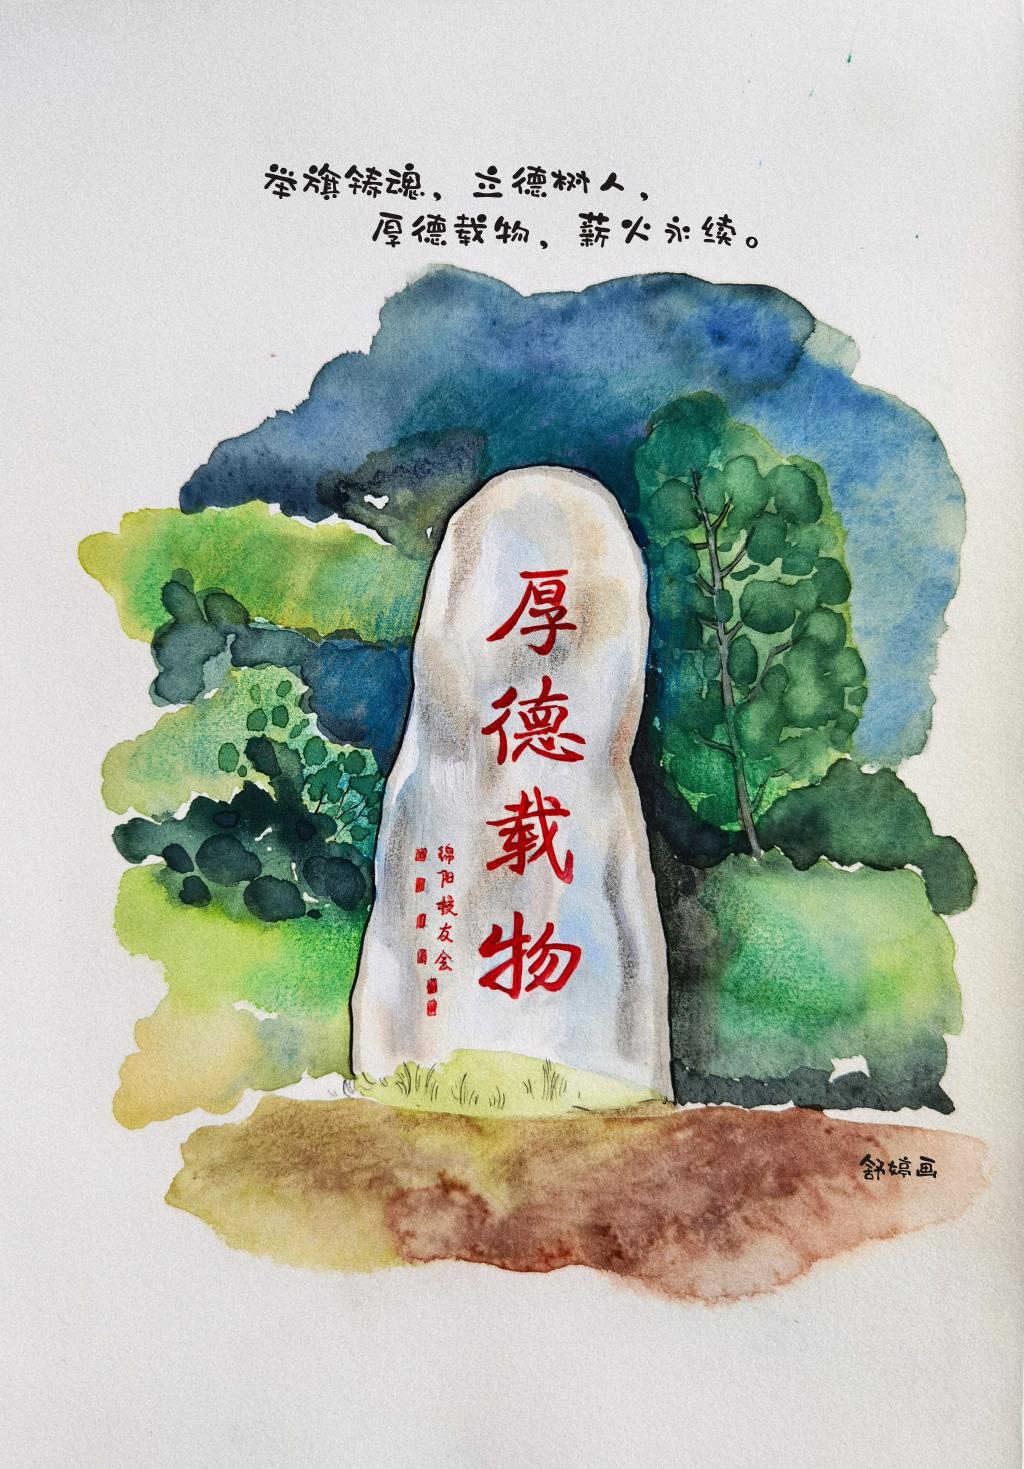 举旗铸魂，立德树人，
厚德载物，薪火永续。
厚德载物
绵阳校友会
舒婷画